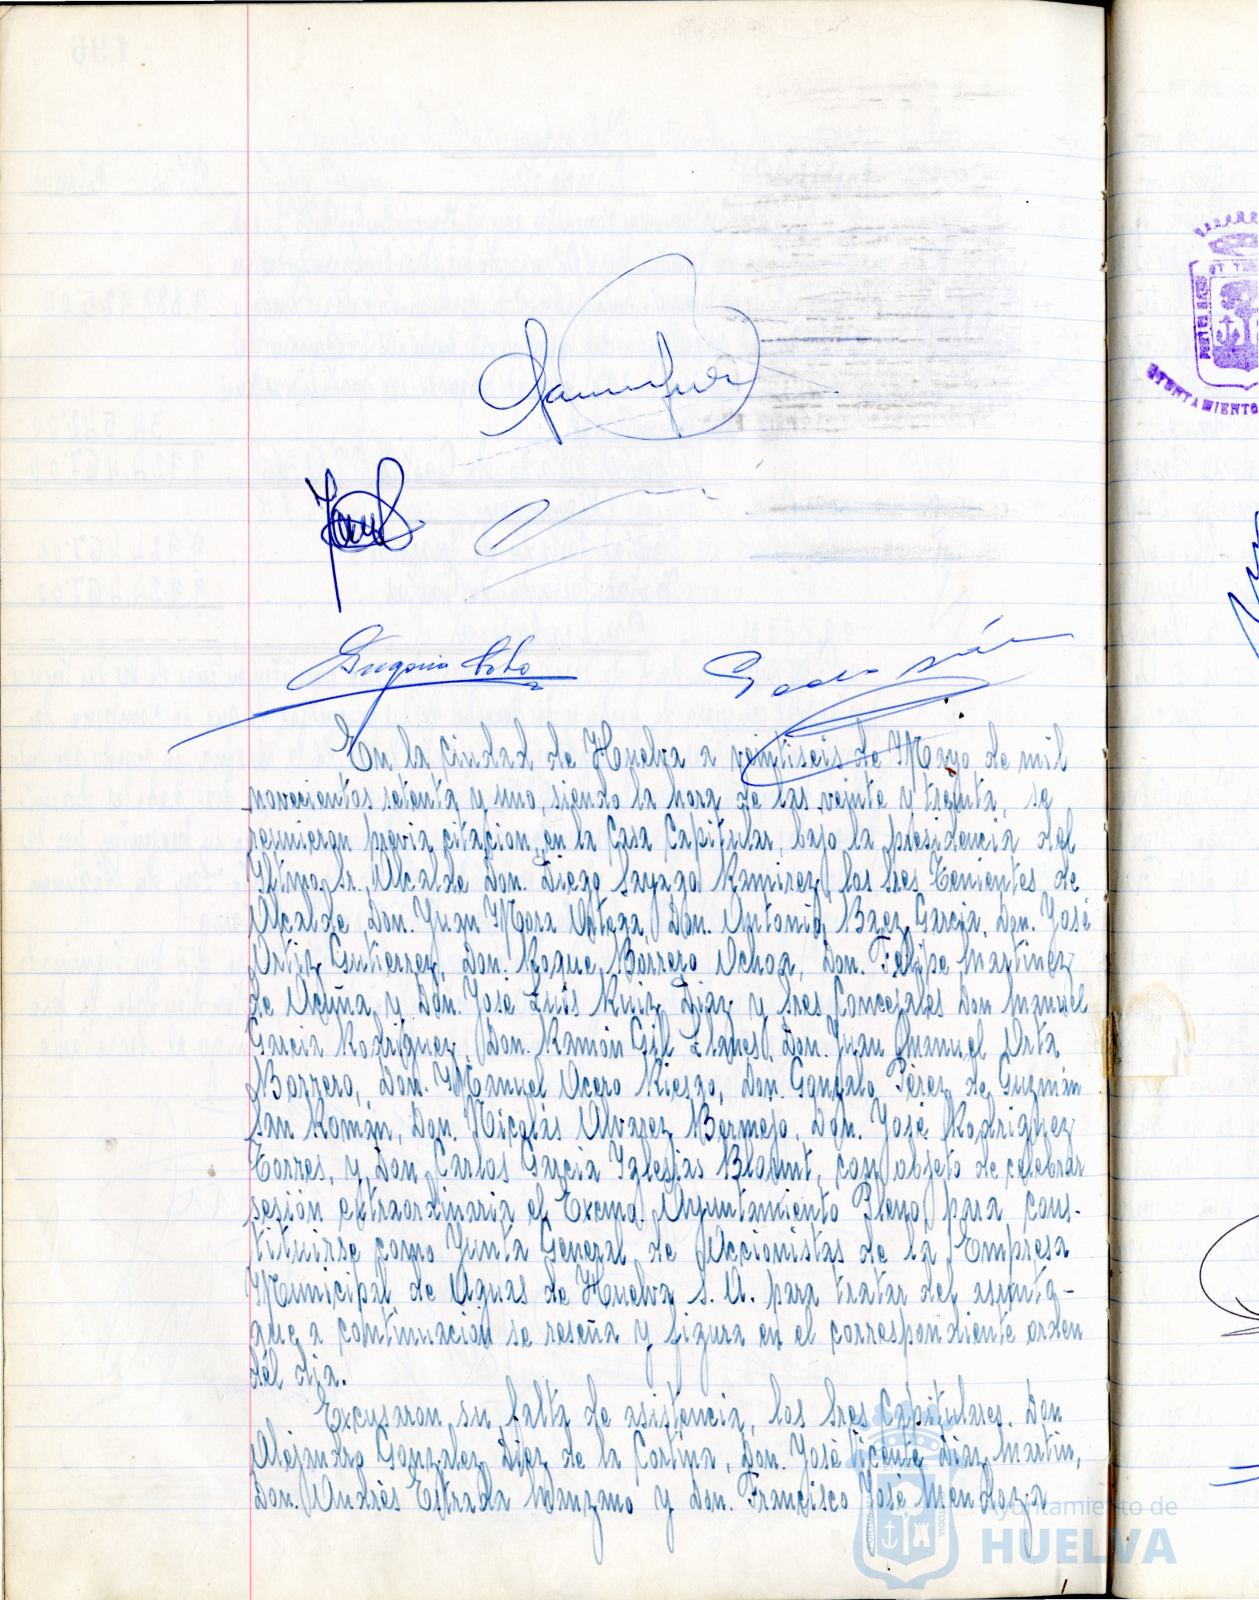 En la ciudad de Huelva a veintiseis de Mayo de mil
novecientos setenta y uno, siendo la hora de las veinte y treinta, se
reunieron previa citación, en la Casa Capitular, bajo la presidencia del
Iltmo. Sr. Alcalde Don. Diego Sayago Ramirez, los Sres Tenientes de
Alcalde, Don. Juan Mora Ortega, Don. Antonio Baez Garcia, Don. José
Ortiz Gutierrez, Don. Roque Borrero Ochoa, Don. Felipe Martínez
de Acuña y Don. José Luis Ruiz Diaz y Sres Concejales Don Manuel
Garcia Rodríguez, Don. Ramón Gil Llanes, Don. Juan Manuel Orta
Borrero, Don. Manuel Acero Riesgo, Don. Gonzalo Pérez de Guzmán
San Román, Don. Nicolás Alvarez Bermejo, Don. José Rodriguez
Torres, y Don Carlos Garcia Iglesias Blount, con objeto de celebrar
sesión extraordinaria el Excmo. Ayuntamiento Pleno, para cons-
tituirse como Junta General de Accionistas de la Empresa
Municipal de Aguas de Huelva S. A. para tratar del asunto-
que a continuación se reseña y figura en el correspondiente orden
del dia.
Excusaron su falta de asistencia, los Sres Capitulares. Don
Alejandro Gonzalez Diez de la Cortina, Don. José Vicente Diaz Martin,
Don. Andrés Estrada Manzano y Don. Francisco José Mendoza
Ayuntamiento de
HUELVA